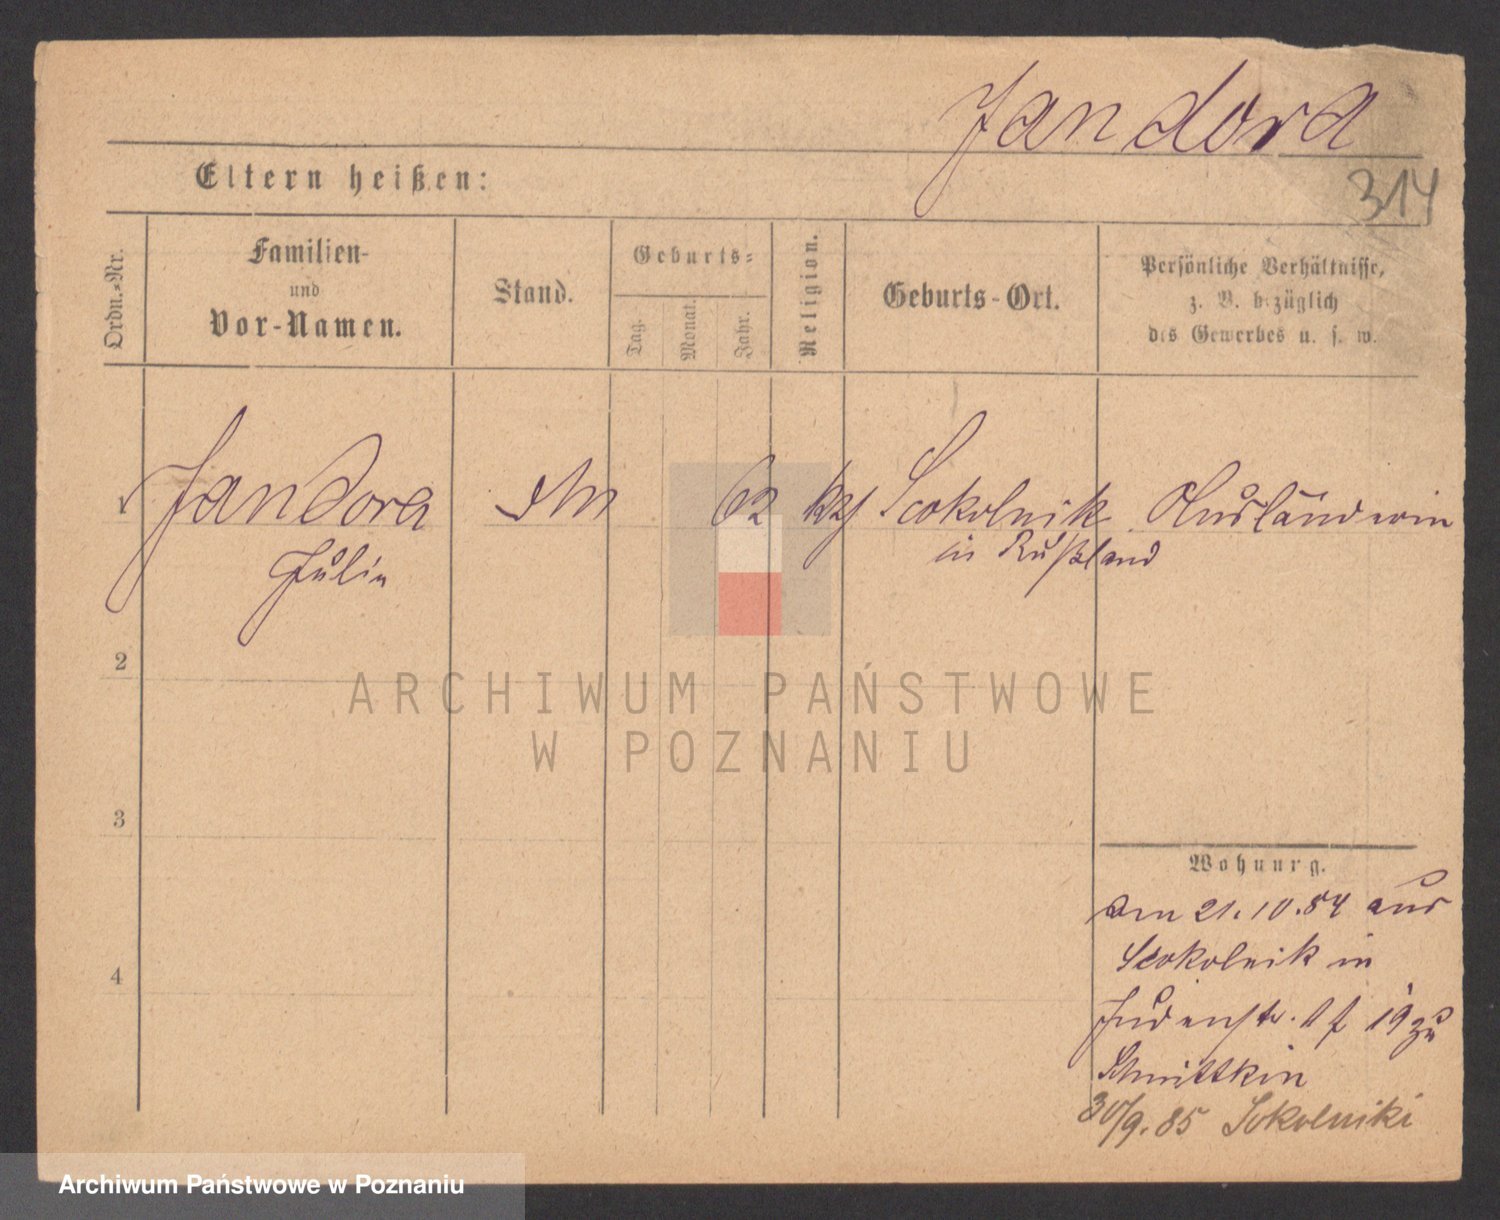 Jandora
314
Eltern heißen:
Ordn.-Nr.
Familien-
und
Vor-Namen.
Stand.
Geburts-
Tag.
Monat.
Jahr.
Religion.
Geburts-Ort.
Persönliche Verhältnisse,
z. B. bezüglich
des Gewerbes u. s. w.
1 Jandora 62 Scokolnik Ausländerin
Julie in Rußland
2
3
4
Wohnung.
am 21.10.84 aus
Scokolnik in
Judenstr. 19 zu
30/9.85 Sokolniki
ARCHIWUM PAŃSTWOWE
W POZNANIU
Archiwum Państwowe w Poznaniu